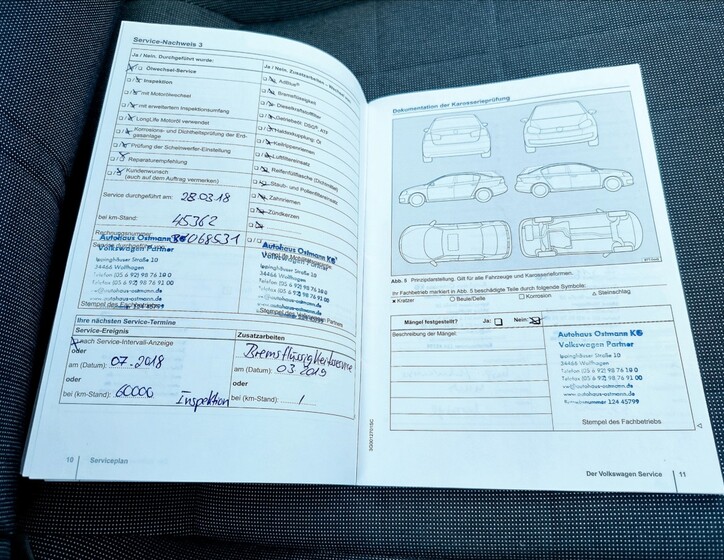 Service-Nachweis 3
Ja / Nein. Durchgeführt wurde:
Ölwechsel-Service
Inspektion
mit Motorölwechsel
mit erweitertem Inspektionsumfang
LongLife Motoröl verwendet
Korrosions- und Dichtheitsprüfung der Erd-
gasanlage
Prüfung der Scheinwerfer-Einstellung
Reparaturempfehlung
Kundenwunsch
(auch auf dem Auftrag vermerken)
Service durchgeführt am: 28.03.18
bei km-Stand: 45362
Rechnungsnummer:
Autohaus Ostmann KG
Volkswagen Partner
Ippinghäuser Straße 10
34466 Wolfhagen
Telefon (05 6 92) 98 76 10 0
Telefax (05 6 92) 98 76 91 00
vw@autohaus-ostmann.de
www.autohaus-ostmann.de
Stempel des Fachbetriebs
Ja / Nein. Zusatzarbeiten
AdBlue®
Bremsflüssigkeit
Dieselkraftstofffilter
Haldexkupplung: Öl
Keilrippenriemen
Luftfiltereinsatz
Reifenfüllflasche (Pannenset)
Staub- und Pollenfiltereinsatz
Zahnriemen
Zündkerzen
Autohaus Ostmann KG
Volkswagen Partner
Ippinghäuser Straße 10
34466 Wolfhagen
Telefon (05 6 92) 98 76 10 0
Telefax (05 6 92) 98 76 91 00
vw@autohaus-ostmann.de
www.autohaus-ostmann.de
Stempel des Volkswagen Partners
Ihre nächsten Service-Termine
Service-Ereignis
nach Service-Intervall-Anzeige
oder
am (Datum): 07.2018
oder
bei (km-Stand): 60000 Inspektion
Zusatzarbeiten
Bremsflüssigkeitsservice
am (Datum): 03.2019
oder
bei (km-Stand): /
10 Serviceplan
Dokumentation der Karosserieprüfung
Abb. 5 Prinzipdarstellung. Gilt für alle Fahrzeuge und Karosserieformen.
Ihr Fachbetrieb markiert in Abb. 5 beschädigte Teile durch folgende Symbole:
× Kratzer ○ Beule/Delle □ Korrosion △ Steinschlag
Mängel festgestellt? Ja: Nein:
Beschreibung der Mängel:
Autohaus Ostmann KG
Volkswagen Partner
Ippinghäuser Straße 10
34466 Wolfhagen
Telefon (05 6 92) 98 76 10 0
Telefax (05 6 92) 98 76 91 00
vw@autohaus-ostmann.de
www.autohaus-ostmann.de
Betriebsnummer 124 45799
Stempel des Fachbetriebs
Der Volkswagen Service 11